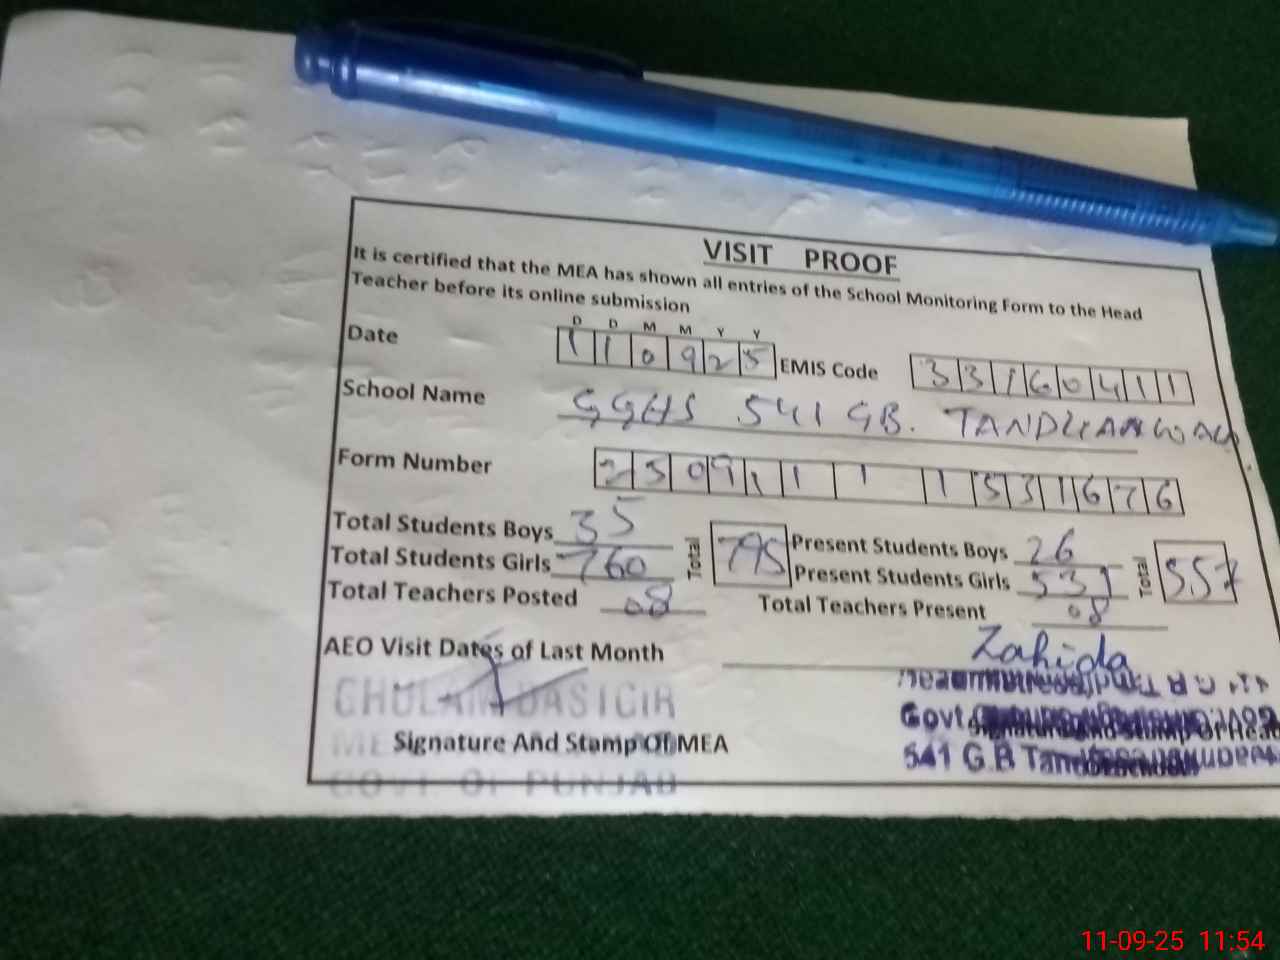 VISIT PROOF
It is certified that the MEA has shown all entries of the School Monitoring Form to the Head
Teacher before its online submission
D D M M Y Y
Date 1 1 0 9 2 5 EMIS Code 3 3 1 6 0 4 1 1
School Name GGHS 541 GB. TANDLIANWALA
Form Number 2 5 0 9 1 1 1 1 5 3 1 6 7 6
Total Students Boys 35 Total 795 Present Students Boys 26 Total 557
Total Students Girls 760 Present Students Girls 531
Total Teachers Posted 08 Total Teachers Present 08
AEO Visit Dates of Last Month
Zahida
GHULAM DASTGIR
Signature And Stamp Of MEA
GOVT OF PUNJAB
Govt
541 G.B
11-09-25 11:54